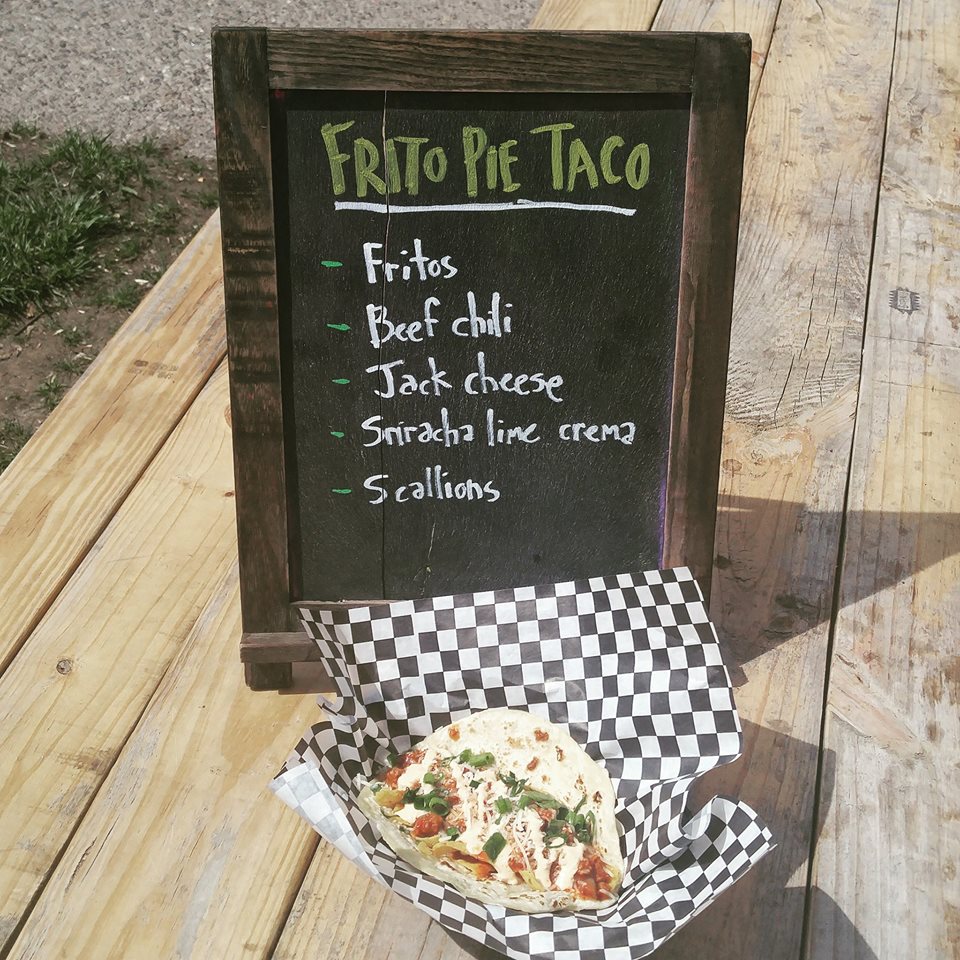 FRITO PIE TACO
- Fritos
- Beef chili
- Jack cheese
- Sriracha lime crema
- Scallions